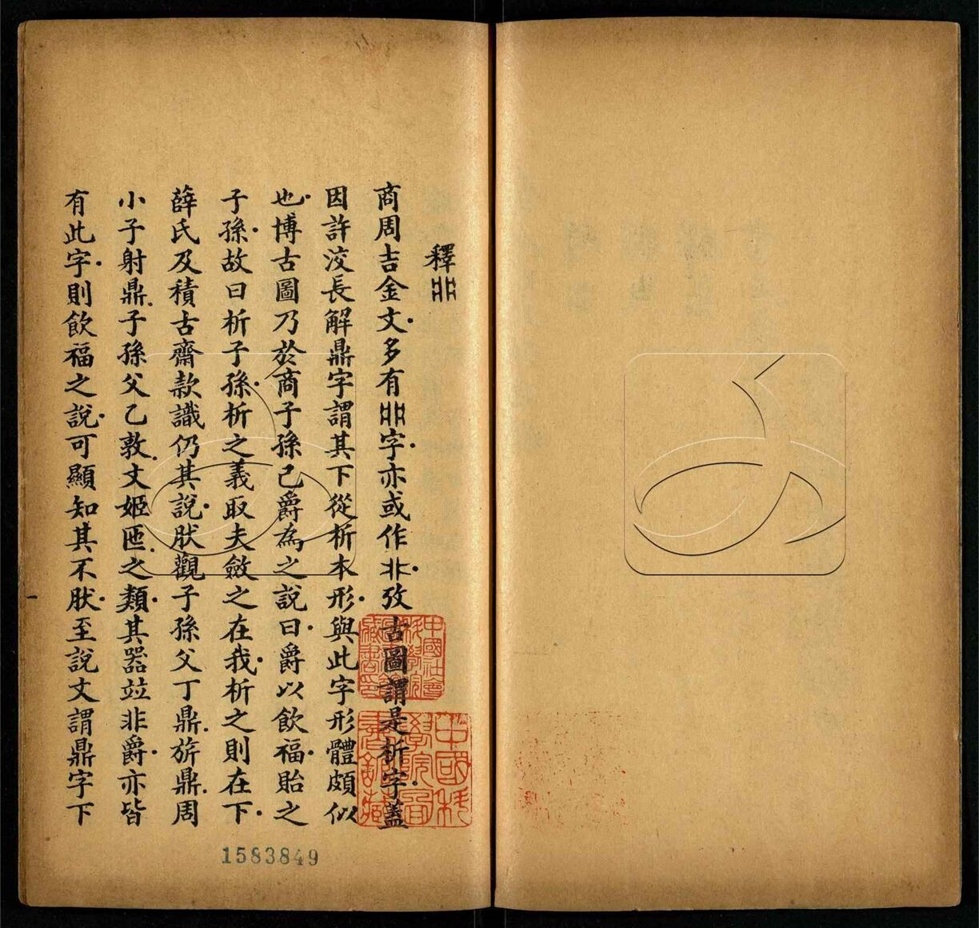 釋𠁥
商周吉金文多有𠁥字亦或作非攷古圖謂是析字蓋
因許洨長解鼎字謂其下從析本形與此字形體頗似
也博古圖乃於商子孫己爵為之說曰爵以飲福貽之
子孫故曰析子孫析之義取夫斂之在我析之則在下
薛氏及積古齋款識仍其說肰觀子孫父丁鼎旂鼎周
小子射鼎子孫父乙敦文姬匜之類其器竝非爵亦皆
有此字則飲福之說可顯知其不肰至說文謂鼎字下
1583849
中國社會科學院
中國科學院圖書館藏